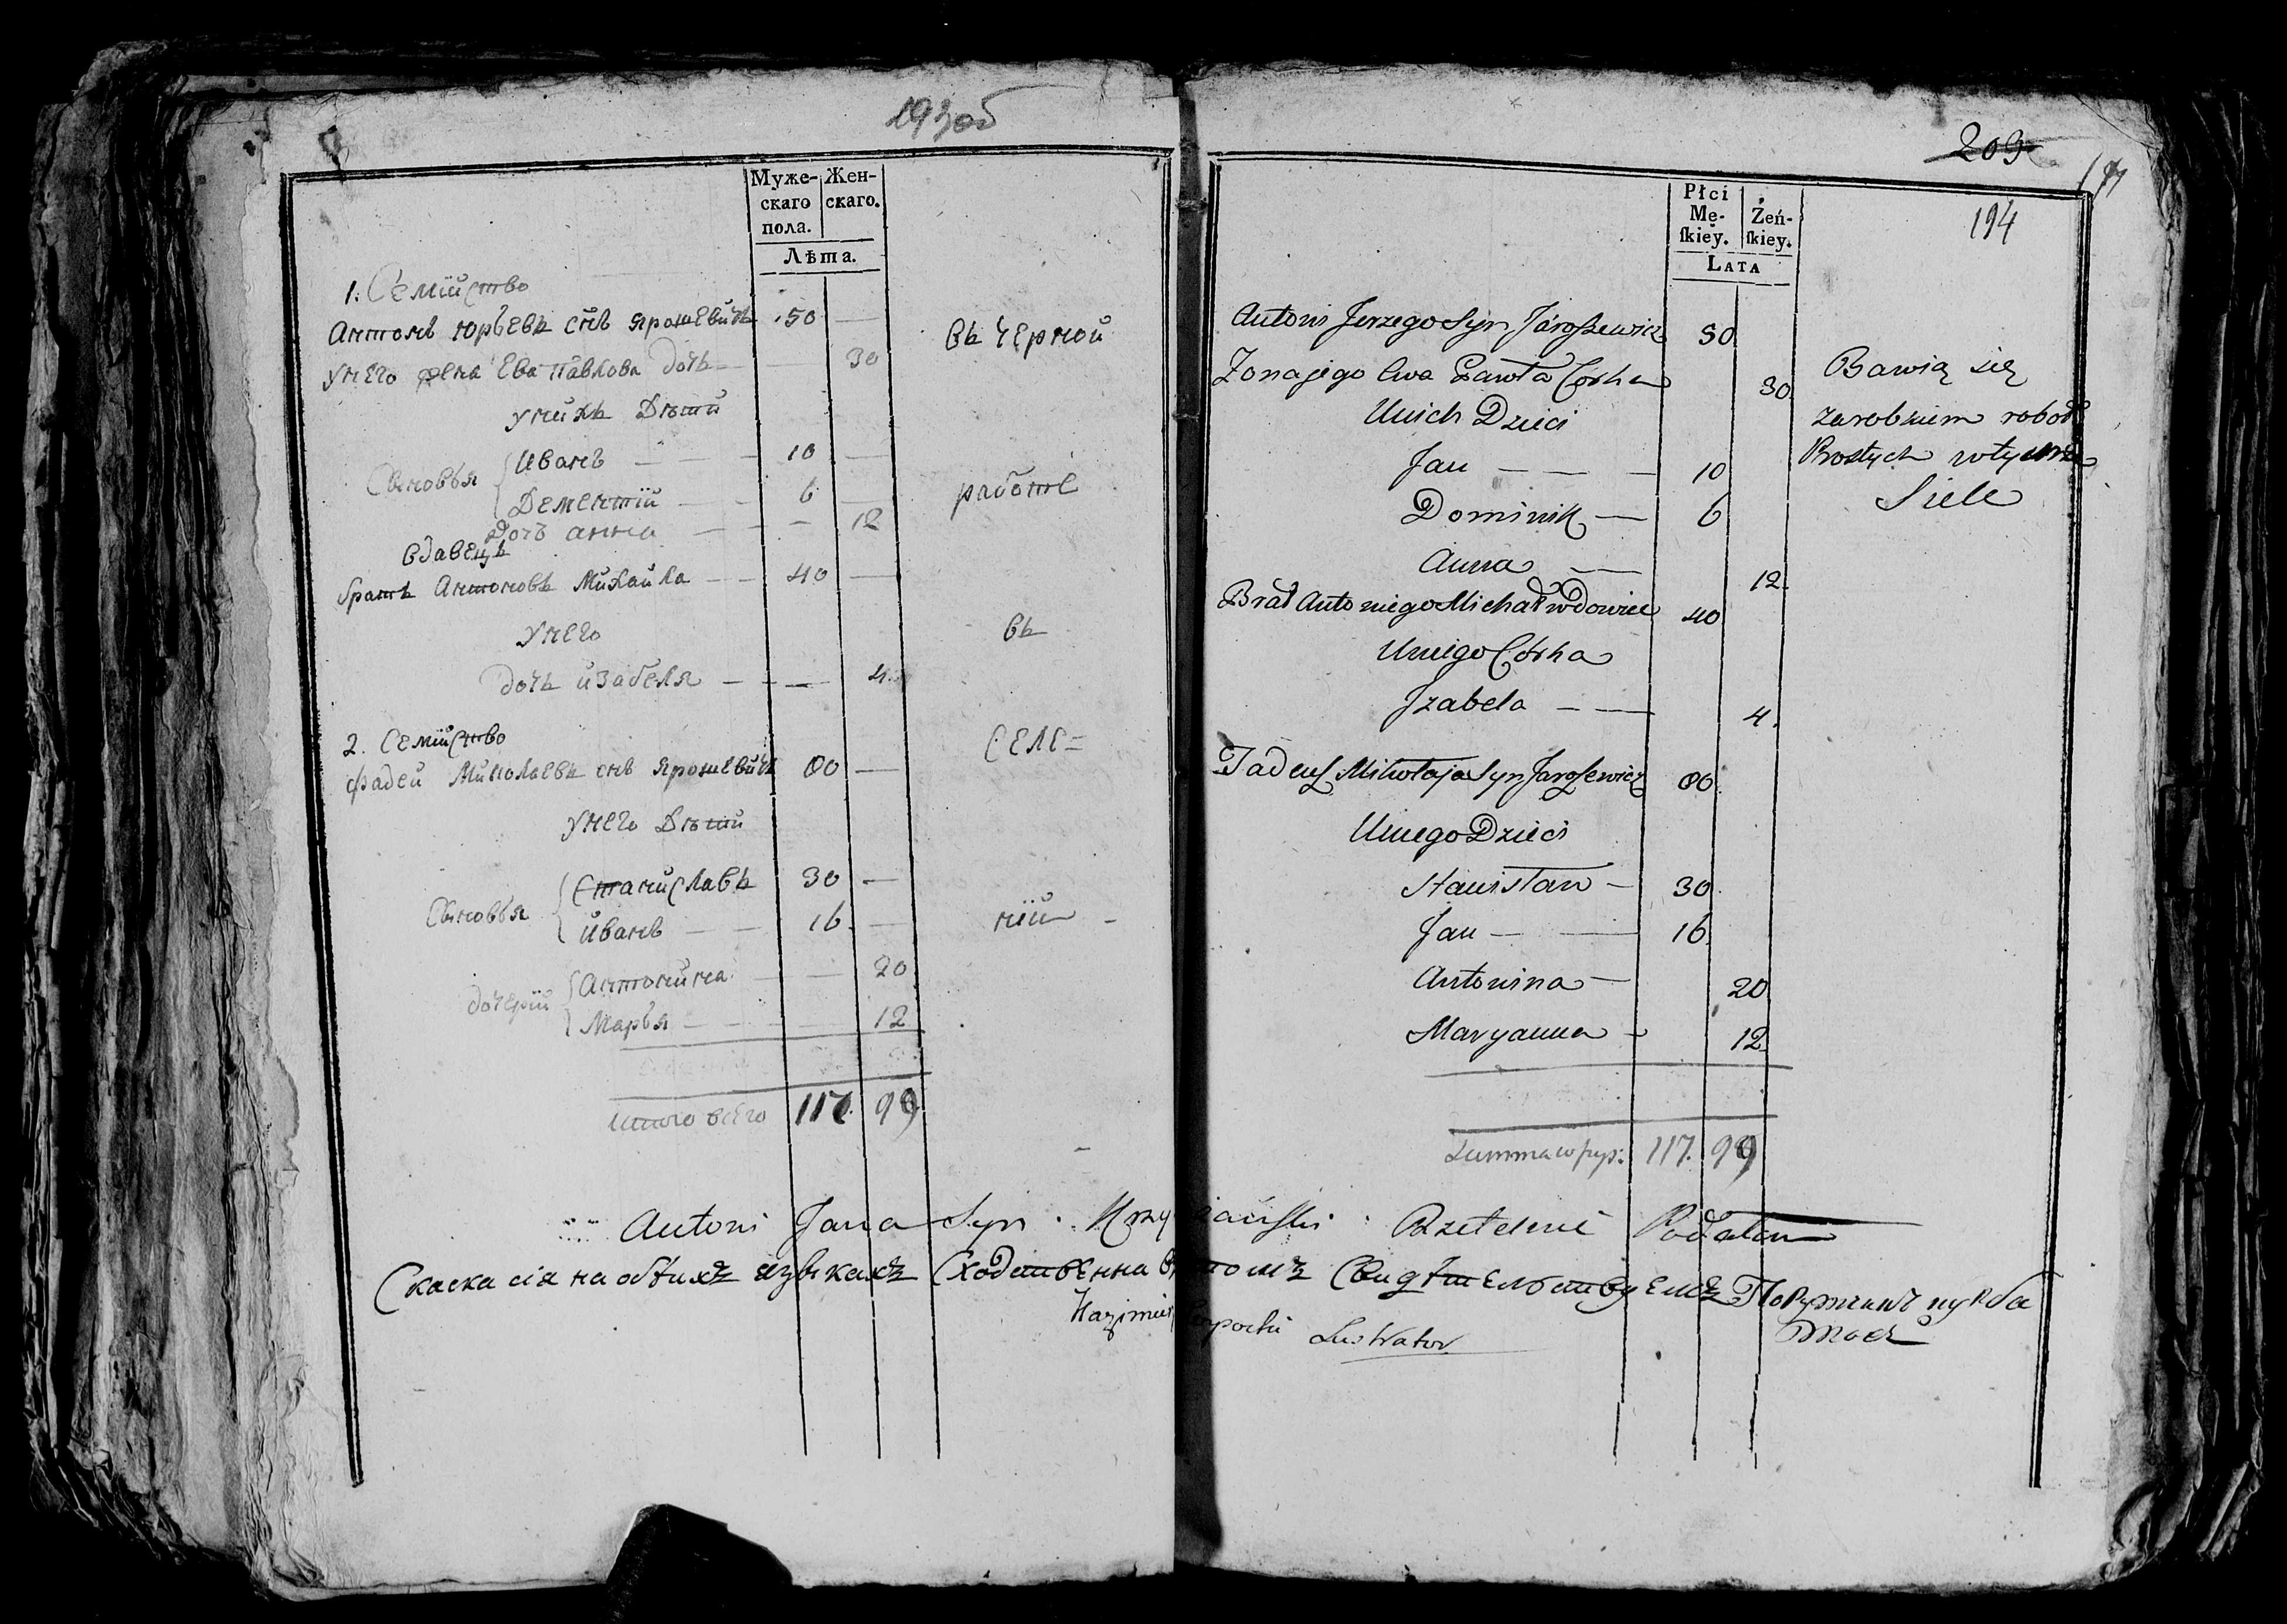 193об
Муже- Жен-
скаго скаго.
пола.
Лѣта.
1. Семійство
Антонъ Юрьевъ снъ Ярошевичъ 50 —
У него жена Ева Павлова дочь — 30
въ черной
у нихъ Дѣтй
Сыновья Иванъ — 10 —
Дементій — 6 —
работѣ
Дочь анна — 12
вдавецъ
братъ Антоновъ Михайла — 40 —
У него
въ
дочь изабеля — 4
2. Семійство
Фадей Миколаевъ снъ Ярошевичъ 80 —
селе=
У него Дѣтй
Сыновья Станиславъ 30 —
Иванъ — 16 —
ніи —
дочерій Антонина — 20
Марья — 12
Итого всего 117. 99
209
194
Płci
Mę- Żeń-
ſkiey. ſkiey.
Lata
Antoni Jerzego Syn Jaroszewicz 50
Żona jego Ewa Pawła Córka 30
Bawią się
zarobkiem robot
Prostych w tym
Siele
U nich Dzieci
Jan — — — 10
Dominik — 6
Anna — 12.
Brat Antoniego Michał wdowiec 40
U niego Córka
Izabela — — 4.
Tadeusz Mikołaja Syn Jaroszewicz 80
U niego Dzieci
Stanisław — 30
Jan — — 16
Antonina — 20
Maryanna — 12
Summa 117. 99
Antoni Jana Syn Rzetelnie Podałem
Скаска сія на обѣихъ языкахъ Сходственна въ томъ Свидѣтельствуемъ
Lustrator